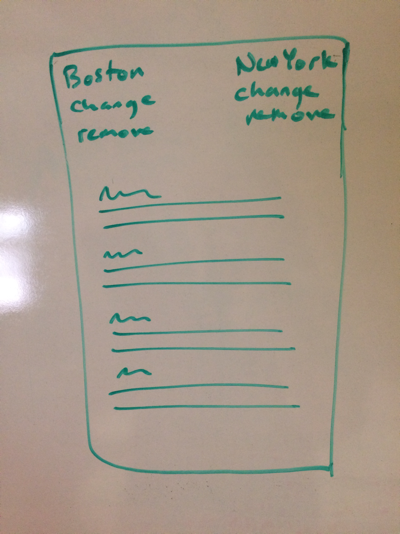 Boston
change
remove
New York
change
remove